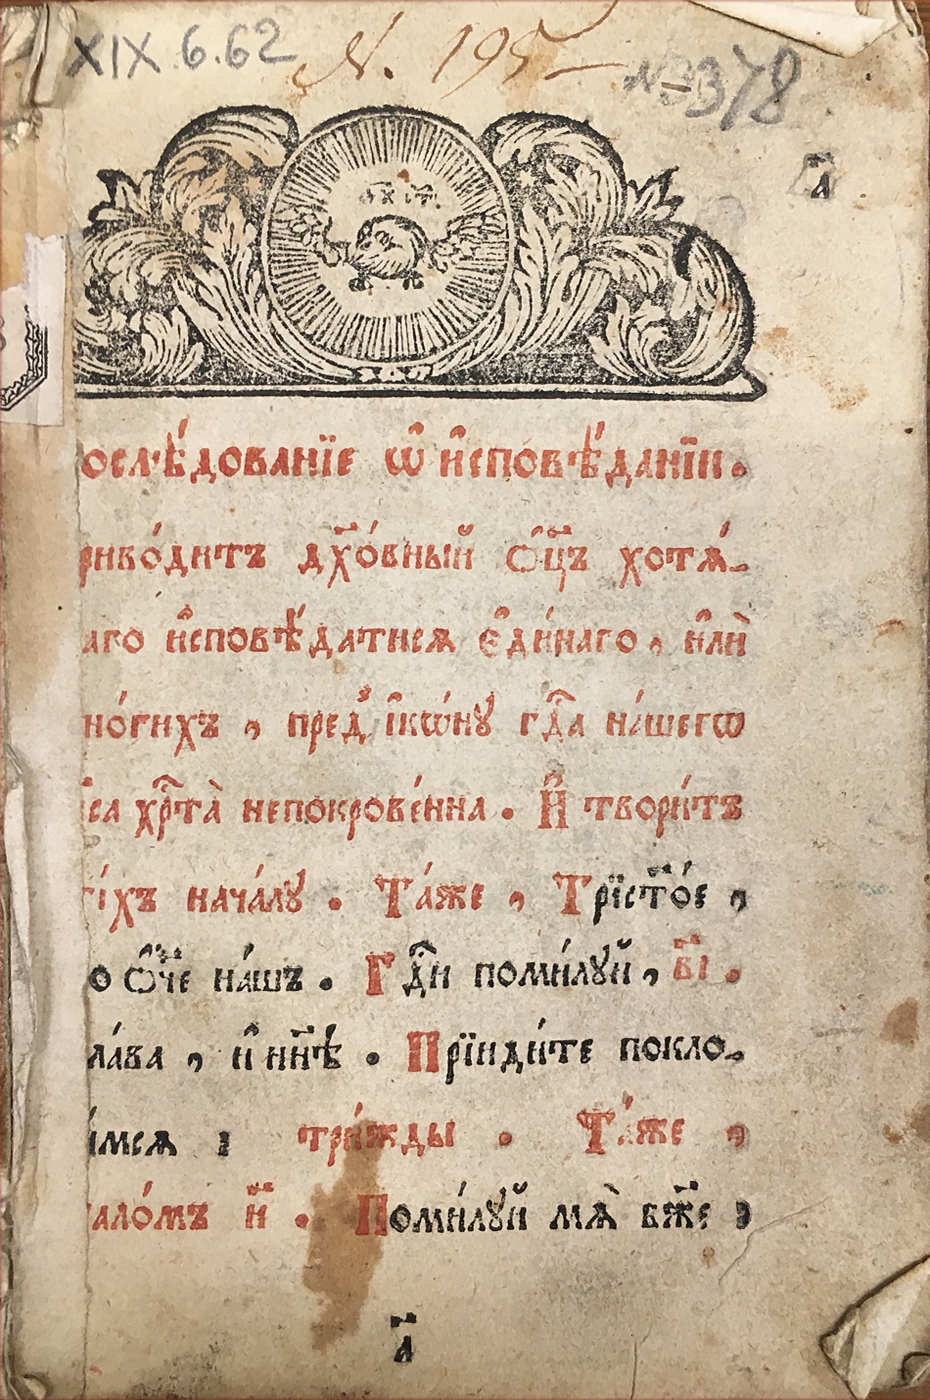 XIX.6.62 N. 195 №3378
а҃
ослѣ́дованїе ѡ҆ и҆сповѣ́данїи.
риво́дитъ дх҃о́вный ѻ҆ц҃ъ хотѧ́-
аго и҆сповѣ́датисѧ є҆ди́наго , и҆лѝ
но́гихъ , пред̾ і҆кѡ́нꙋ гдⷭ҇а на́шегѡ
і҃са хрⷭ҇та̀ непокрове́нна . И҆ твори́тъ
тіхъ нача́лꙋ . Та́же , Трїст҃о́е ,
о Ѻ҆́ч҃е на́шъ . Гдⷭ҇и поми́лꙋй , в҃і .
ла́ва , и҆ нн҃ѣ . Прїиди́те покло-
и́мсѧ , три́жды . Та́же ,
ало́мъ н҃ . Поми́лꙋй мѧ̀ бж҃е ,
а҃